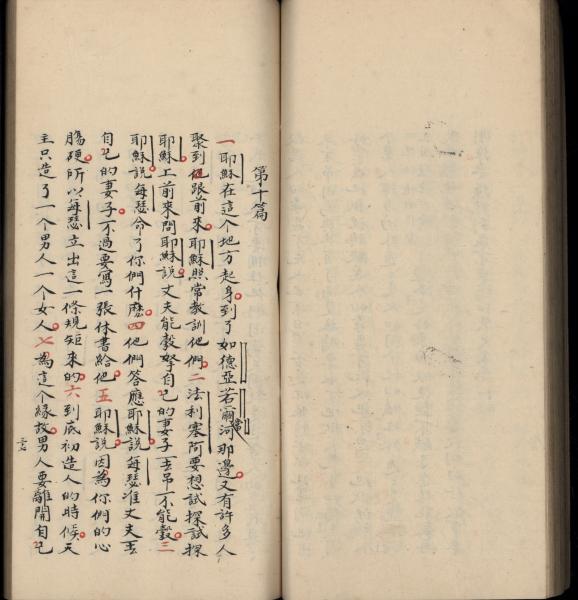 第十篇
一耶穌在這个地方起身到了如德亞若爾河那邊又有許多人
聚到他跟前來耶穌照常教訓他們二法利塞阿要想試探試探
耶穌上前來問耶穌說丈夫能彀拏自己的妻子丟吊不能彀三
耶穌說每瑟命了你們什麽四他們答應耶穌說每瑟准丈夫丟
自己的妻子不過要寫一張休書給他五耶穌說因為你們的心
腸硬所以每瑟立出這一條規矩來的六到底初造人的時候天
主只造了一个男人一个女人七為這个緣故男人要離開自己